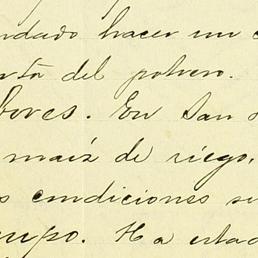 ndado hacer un c
rta del potrero.
bores. En San
maiz de riego,
s condiciones su
upo. Ha estad